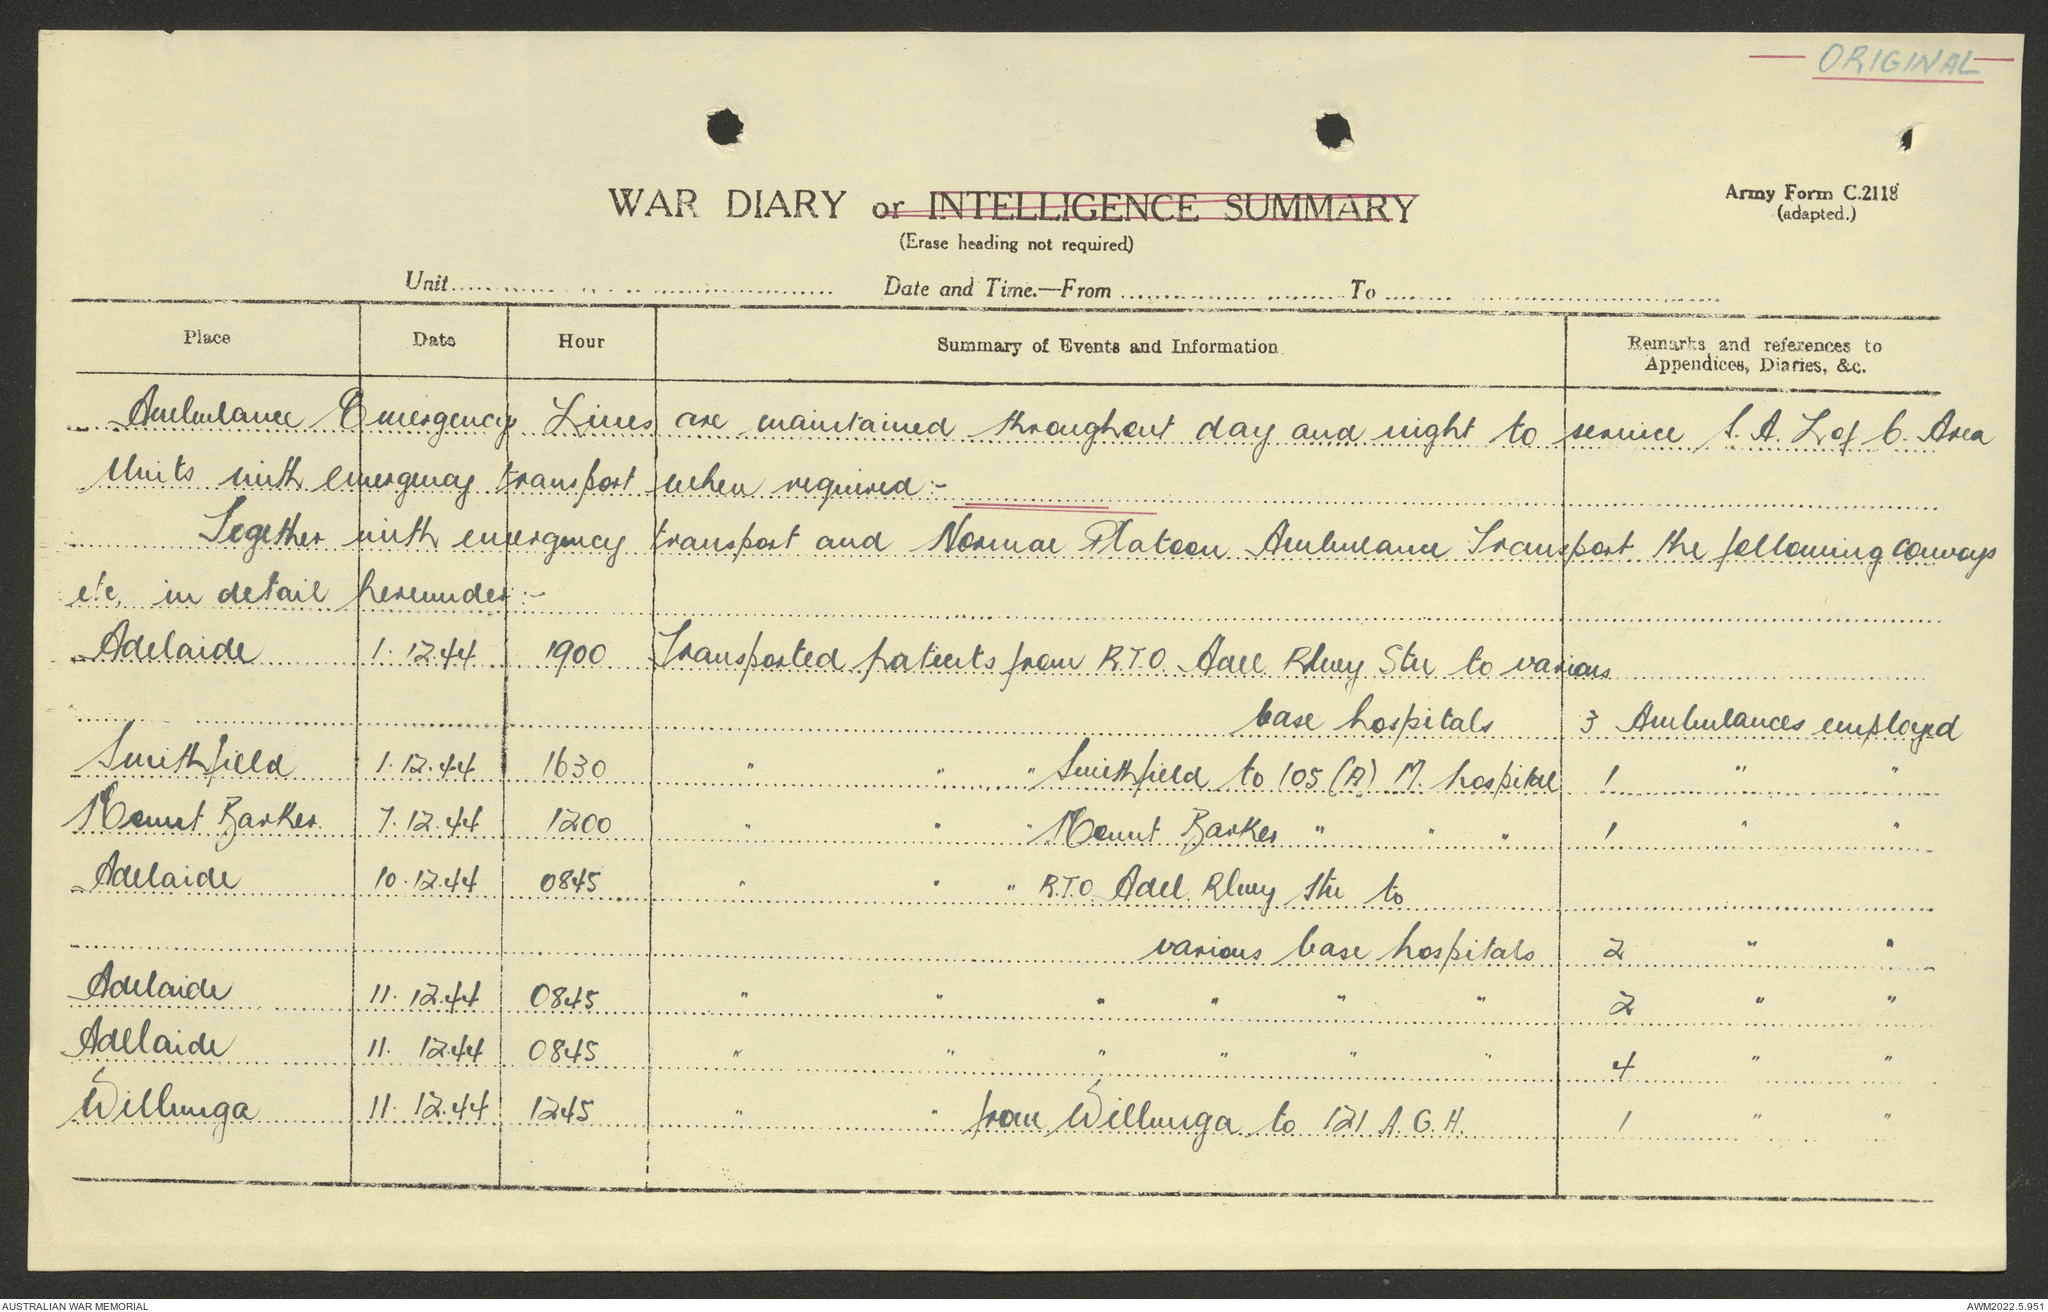 ORIGINAL
WAR DIARY or INTELLIGENCE SUMMARY
Army Form C.2118
(adapted.)
(Erase heading not required)
Unit.......... Date and Time.—From .......... To ..........
Place Date Hour Summary of Events and Information Remarks and references to
Appendices, Diaries, &c.
Ambulance Emergency Lines are maintained throughout day and night to service S.A. L of C. Area
Units with emergency transport when required:-
Together with emergency transport and Normal Platoon Ambulance Transport the following convoys
etc. in detail hereunder:-
Adelaide 1.12.44 1900 Transported patients from R.T.O. Adel. Rlwy Stn to various
base hospitals 3 Ambulances employed
Smithfield 1.12.44 1630 " " " Smithfield to 105 (A) M. hospital 1 " "
Mount Barker 7.12.44 1200 " " " Mount Barker " " " 1 " "
Adelaide 10.12.44 0845 " " " R.T.O. Adel. Rlwy Stn to
various base hospitals 2 " "
Adelaide 11.12.44 0845 " " " " " " 2 " "
Adelaide 11.12.44 0845 " " " " " " 4 " "
Willunga 11.12.44 1245 " " from Willunga to 121 A.G.H. 1 " "
AUSTRALIAN WAR MEMORIAL AWM2022.5.951